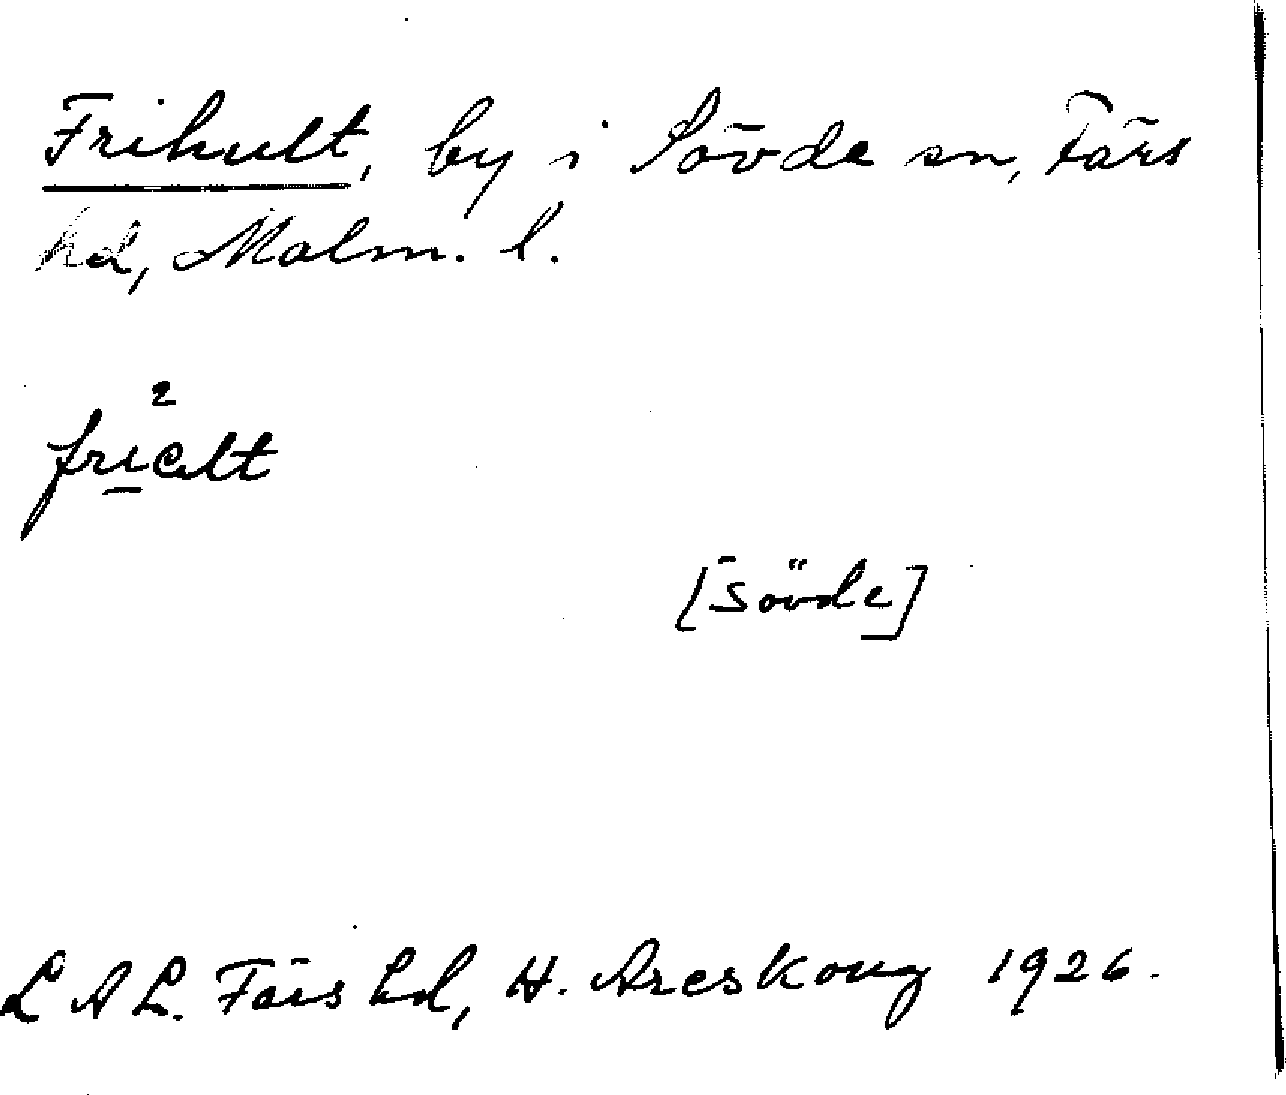 Frihult, by i Sövde sn, Färs
hd, Malm. l.
2
fri̱elt
[Sövde]
L A L. Färs hd, H. Areskoug 1926.